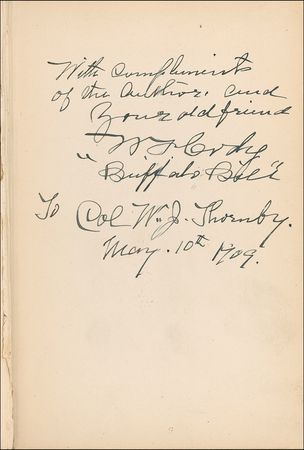 With Compliments
of the Author. and
Your old friend
W F Cody
"Buffalo Bill"
To Col W. J. Thornby.
May. 10th 1909.